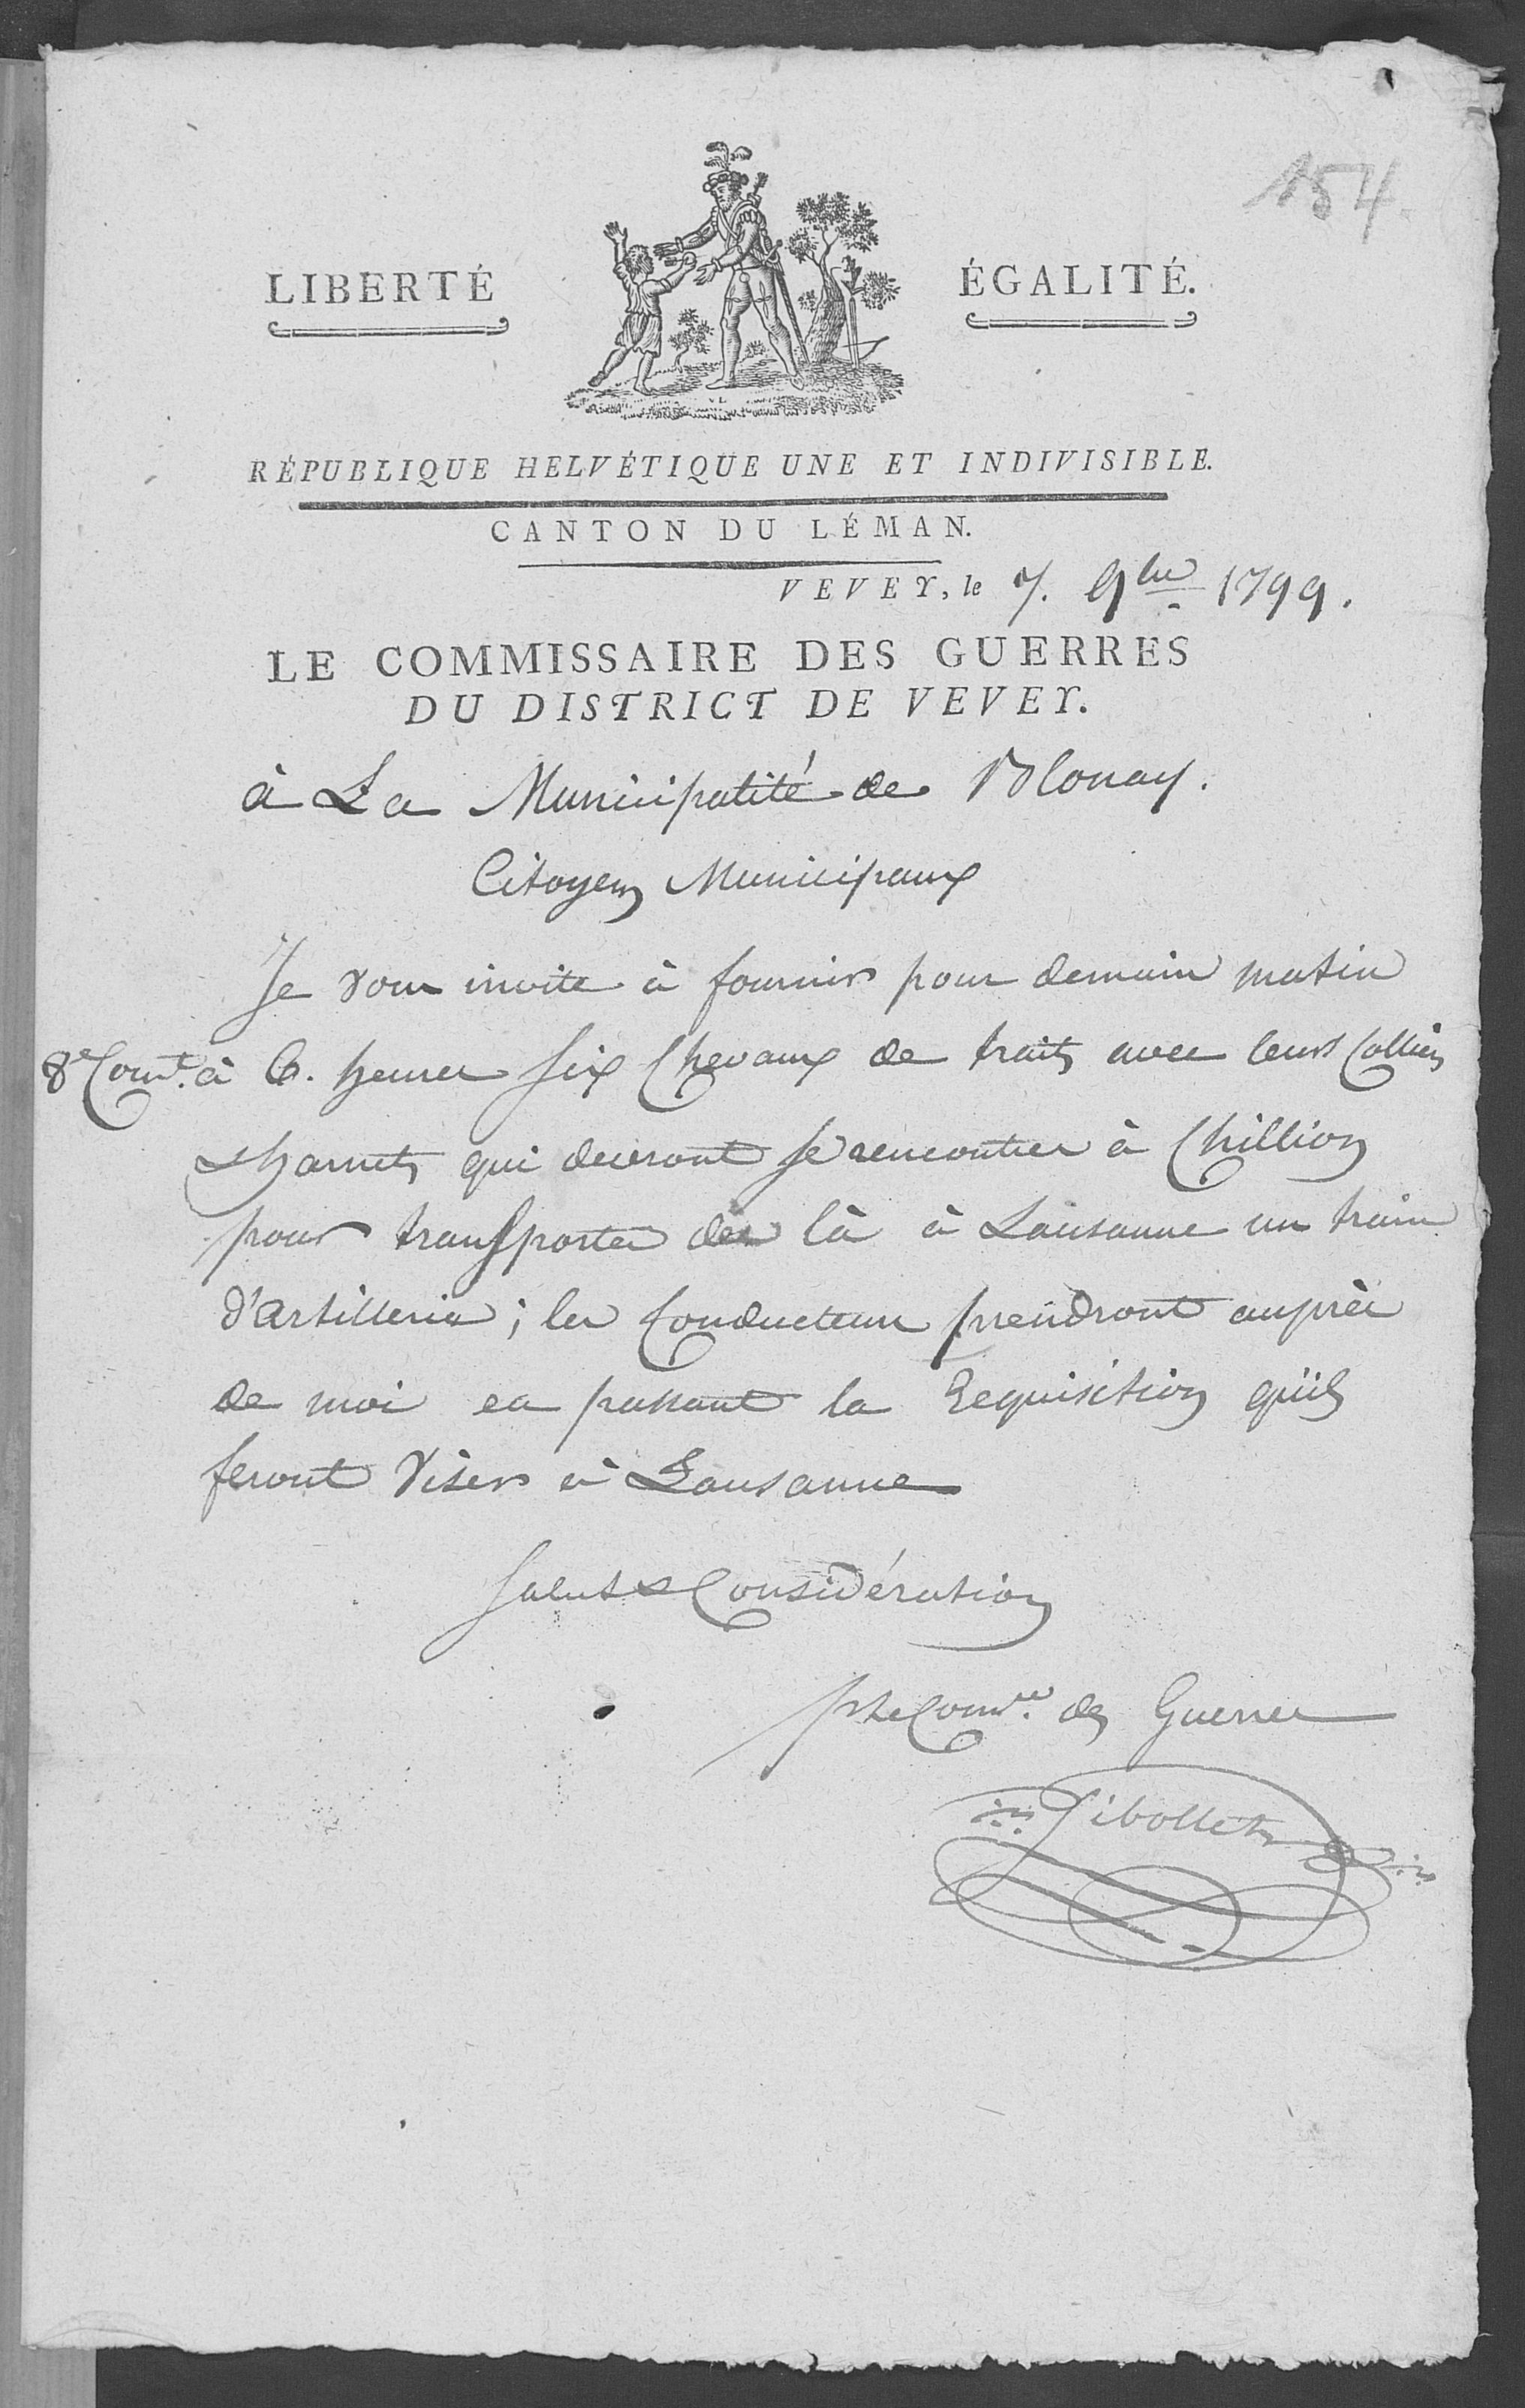 154.
LIBERTÉ
ÉGALITÉ.
RÉPUBLIQUE HELVÉTIQUE UNE ET INDIVISIBLE.
CANTON DU LÉMAN.
VEVEY, le 7. 9bre 1799.
LE COMMISSAIRE DES GUERRES
DU DISTRICT DE VEVEY.
à La Municipalité de Blonay.
Citoyens Municipaux
Je vous invite à fournir pour demain matin
8e Cour.t à 6. heures six Chevaux de traits avec leurs Colliers
& harnets qui devront se rencontrer à Chillion
pour transporter des là à Lausanne un train
d'artillerie ; les Conducteurs prendront auprès
de moi en passant la Requisition qu'ils
feront viser à Lausanne
Salut & Considération
des Guerres